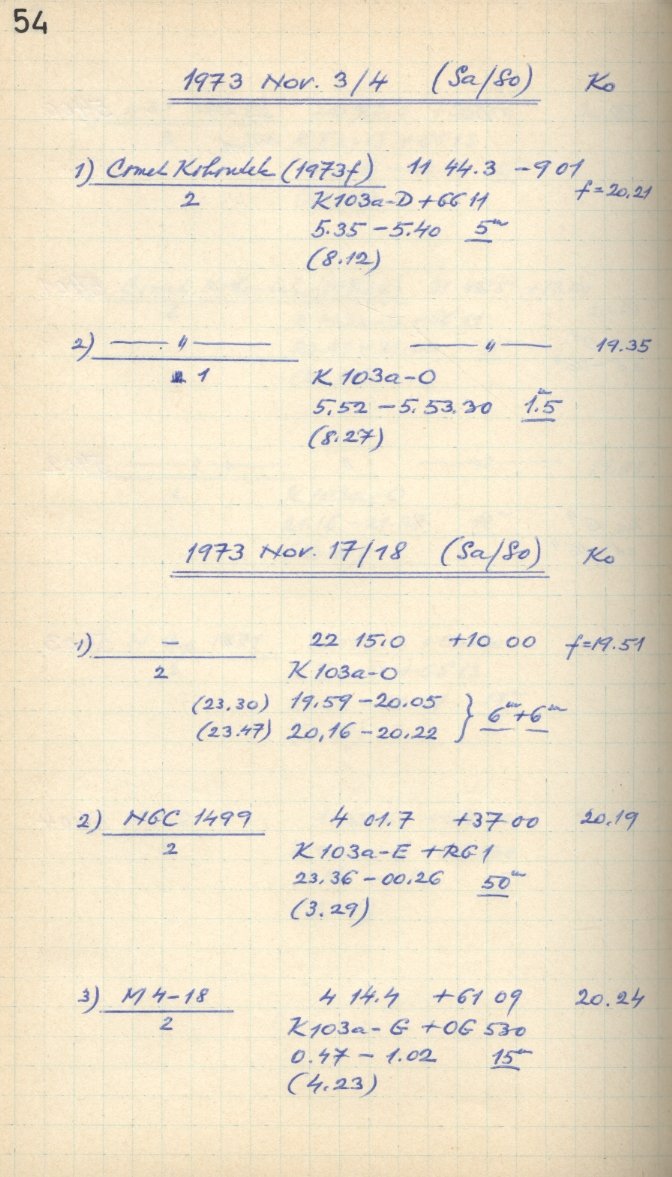 54
1973 Nov. 3/4 (Sa/So) Ko
1) Comet Kohoutek (1973f) 11 44.3 -9 01 f=20.21
2 K103a-D + GG 11
5.35 - 5.40 5m
(8.12)
2) —— " —— —— " —— 19.35
1 K103a-O
5.52 - 5.53.30 1.5m
(8.27)
1973 Nov. 17/18 (Sa/So) Ko
1) — 22 15.0 +10 00 f=19.51
2 K103a-O
(23.30) 19.59 - 20.05 } 6m+6m
(23.47) 20,16 - 20.22
2) NGC 1499 4 01.7 +37 00 20.19
2 K103a-E + RG1
23.36 - 00.26 50m
(3.29)
3) M 4-18 4 14.4 +61 09 20.24
2 K103a-G + OG 530
0.47 - 1.02 15m
(4.23)